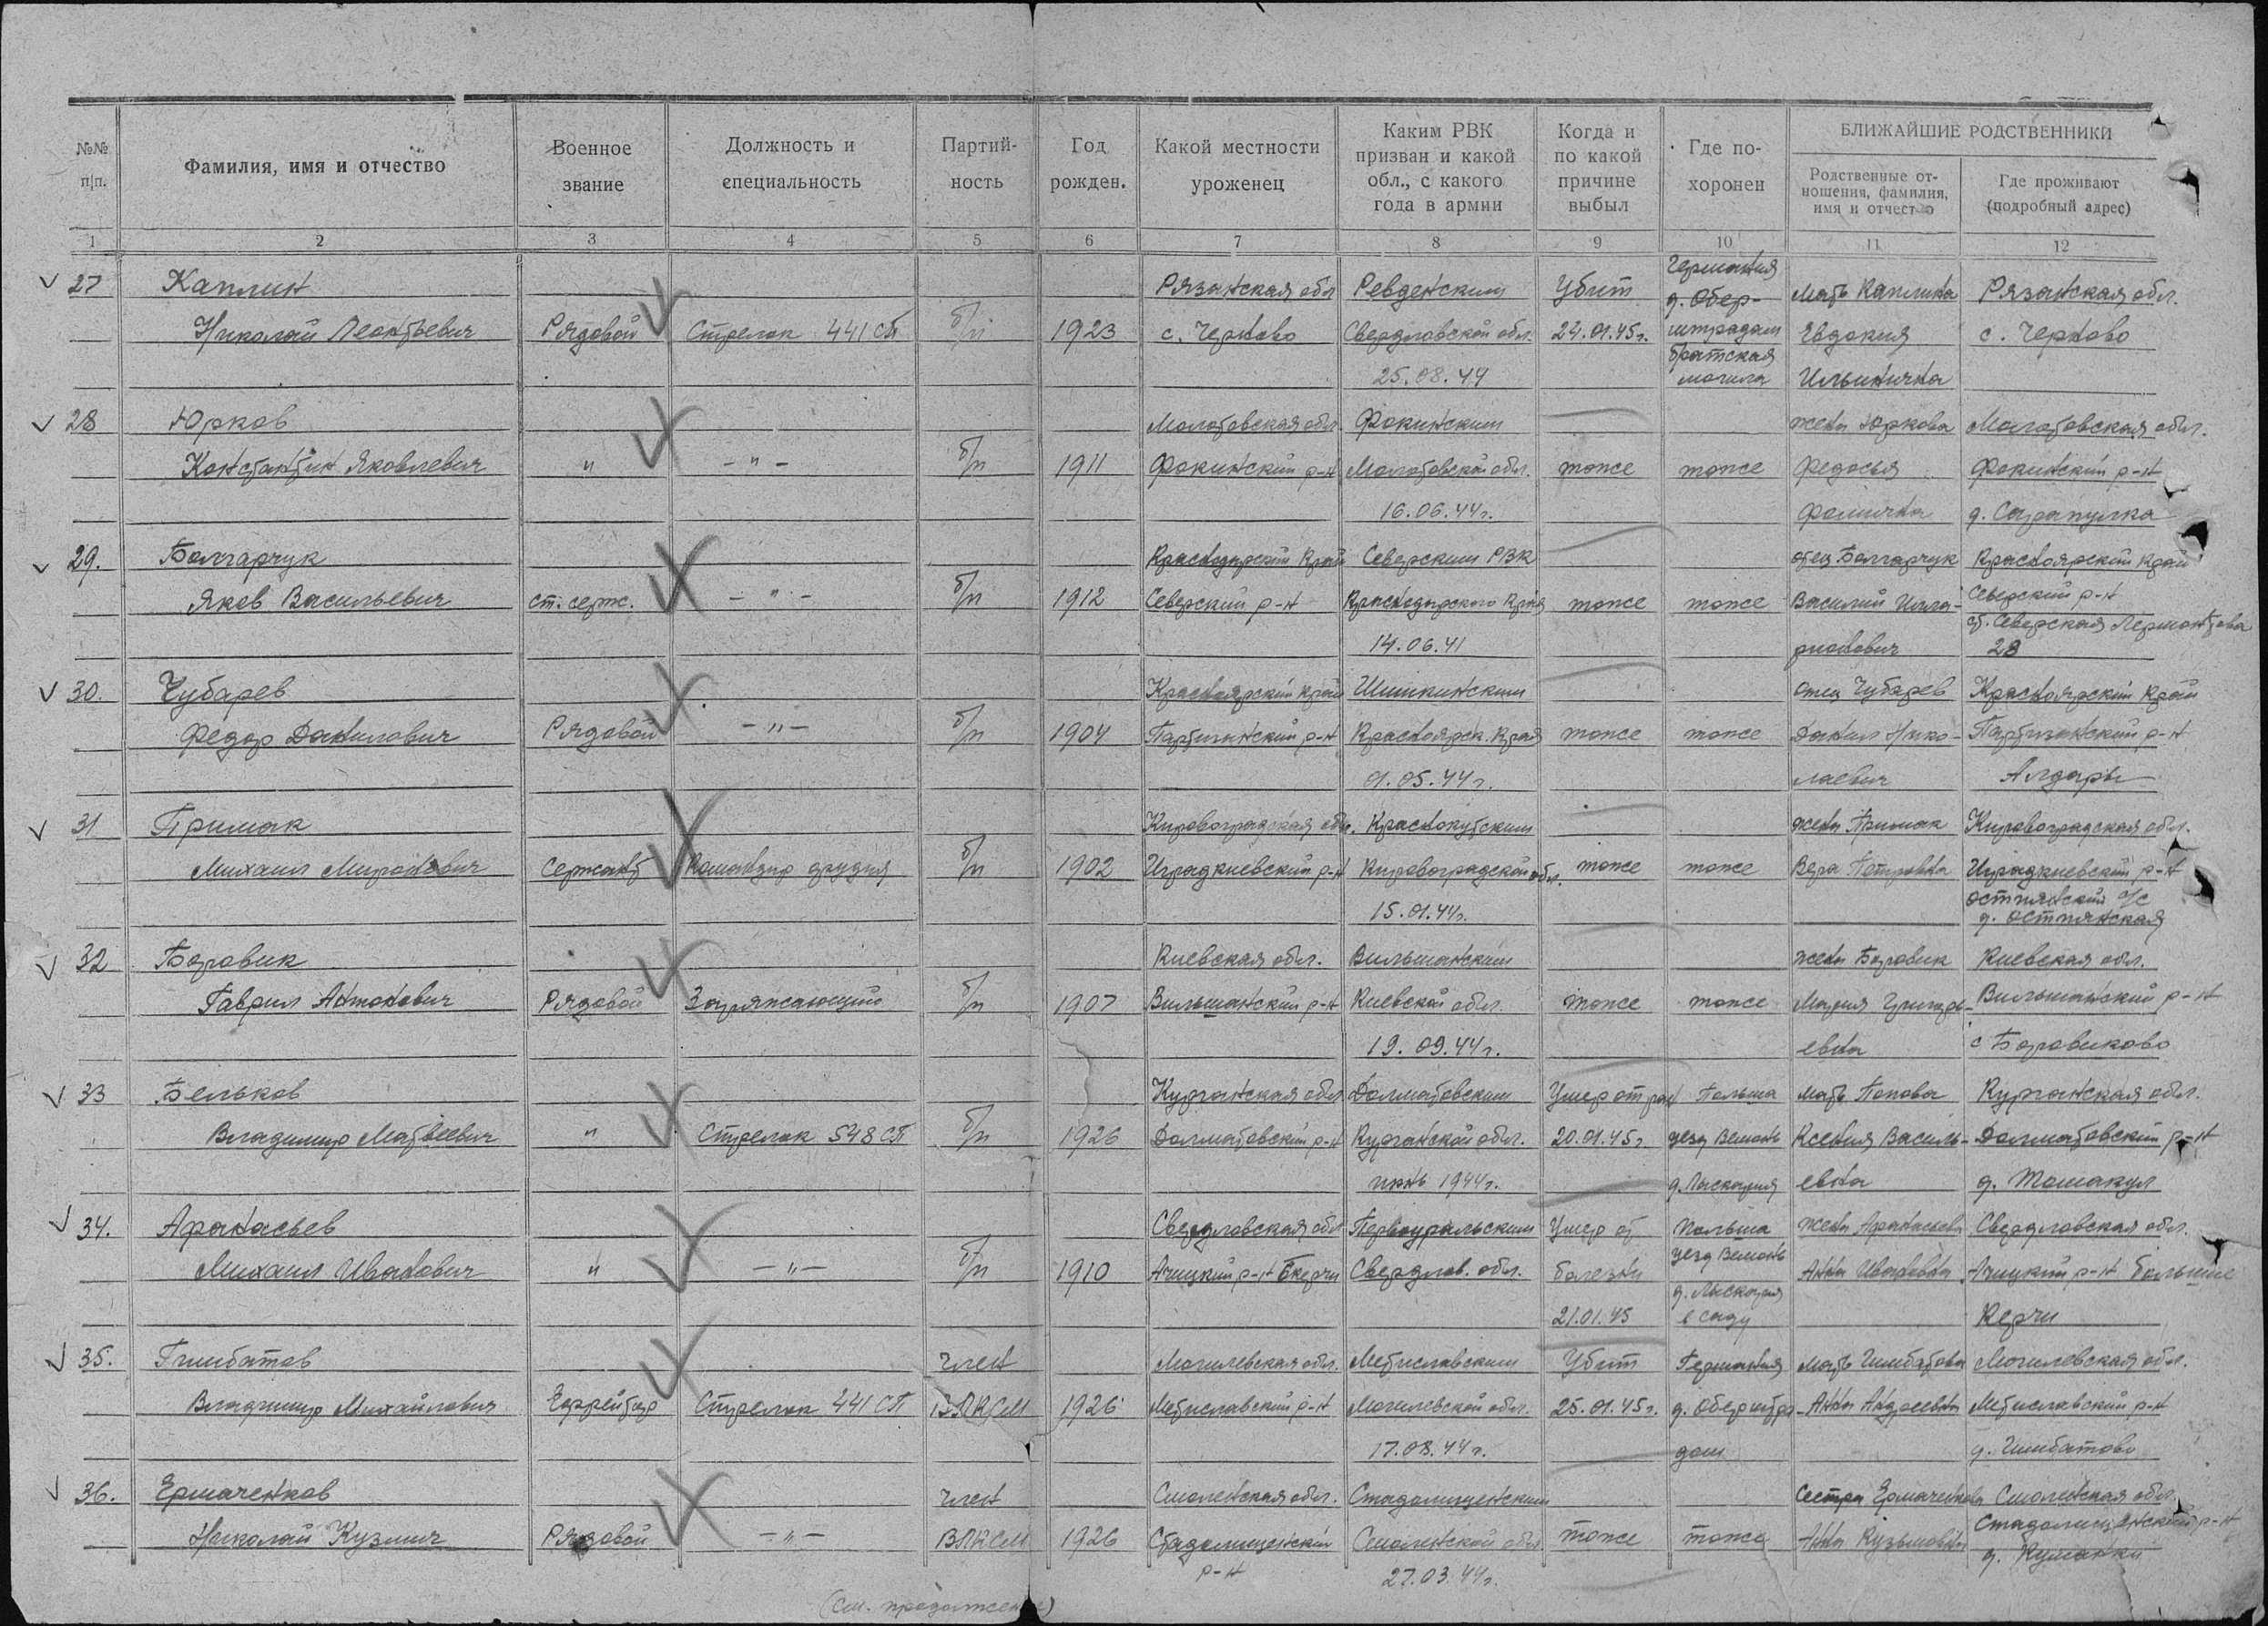 №№ п|п.
Фамилия, имя и отчество
Военное звание
Должность и специальность
Партий-ность
Год рожден.
Какой местности уроженец
Каким РВК призван и какой обл., с какого года в армии
Когда и по какой причине выбыл
Где по-хоронен
БЛИЖАЙШИЕ РОДСТВЕННИКИ
Родственные от-ношения, фамилия, имя и отчество
Где проживают (подробный адрес)
1 2 3 4 5 6 7 8 9 10 11 12
27 Каплин Рязанская обл Ревденским Убит Германия д. Обер- Мать Каплина Рязанская обл.
Николай Леонтьевич Рядовой Стрелок 441 СП б/п 1923 с. Черново Свердловской обл. 24.01.45г. штрадам братская Евдокия с. Черново
25.08.44 могила Ильинична
28 Юрков Молотовская обл Фокинским жена Юркова Молотовская обл.
Константин Яковлевич " – " – б/п 1911 Фокинский р-н Молотовской обл. тоже тоже Федосья Фокинский р-н
16.06.44г. Фоминична д. Сарапулка
29. Болгарчук Краснодарский край Северским РВК отец Болгарчук Красноярский край
Яков Васильевич ст. серж. – " – б/п 1912 Северский р-н Краснодарского края тоже тоже Василий Илла- Северский р-н
ст. Северская Лермонтова
14.06.41 рионович 28
30. Чубарев Красноярский край Шиткинским отец Чубарев Красноярский край
Федор Данилович Рядовой – " – б/п 1904 Партизанский р-н Красноярск. края тоже тоже Данил Нико- Партизанский р-н
01.05.44г. лаевич Алдары
31 Примак Кировоградская обл. Краснокутским жена Примак Кировоградская обл.
Михаил Миронович Сержант Командир орудия б/п 1902 р-н Кировоградской обл. тоже тоже Вера Петровна р-н
с/с
15.01.44г. д.
32 Боровик Киевская обл. Вильшанским жена Боровик Киевская обл.
Гаврил Антонович Рядовой Заряжающий б/п 1907 Вильшанский р-н Киевской обл. тоже тоже Мария Григорь- Вильшанский р-н
19.09.44г. евна с Боровиково
33 Бельков Курганская обл Долматовским Умер от ран Польша мать Попова Курганская обл.
Владимир Матвеевич " Стрелок 548 СП б/п 1926 Долматовский р-н Курганской обл. 20.01.45г. уезд Велюнь Ксения Василь- Долматовский р-н
июнь 1944г. д. евна д. Тамакул
34. Афанасьев Свердловская обл Первоуральским Умер от Польша жена Афанасьева Свердловская обл.
Михаил Иванович " – " – б/п 1910 Ачицкий р-н Бкерчи Свердлов. обл. болезни уезд Велюнь Анна Ивановна Ачицкий р-н Большие
21.01.45 в саду Керчи
35. Гимбатов член Могилевская обл. Мстиславским Убит Германия Мать Гимбатова Могилевская обл.
Владимир Михайлович Ефрейтор Стрелок 441 СП ВЛКСМ 1926 Мстиславский р-н Могилевской обл. 25.01.45г. д. Оберштра- Анна Андреевна Мстиславский р-н
17.08.44г. дам д. Гимбатово
36. Ермаченков член Смоленская обл. Стодолищенским Сестра Ермаченкова Смоленская обл.
Николай Кузмич Рядовой – " – ВЛКСМ 1926 Стадолищенский Смоленской обл. тоже тоже Анна Кузьмовна Стадолищенский р-н
р-н 27.03.44г. д.
(см. продолжение)